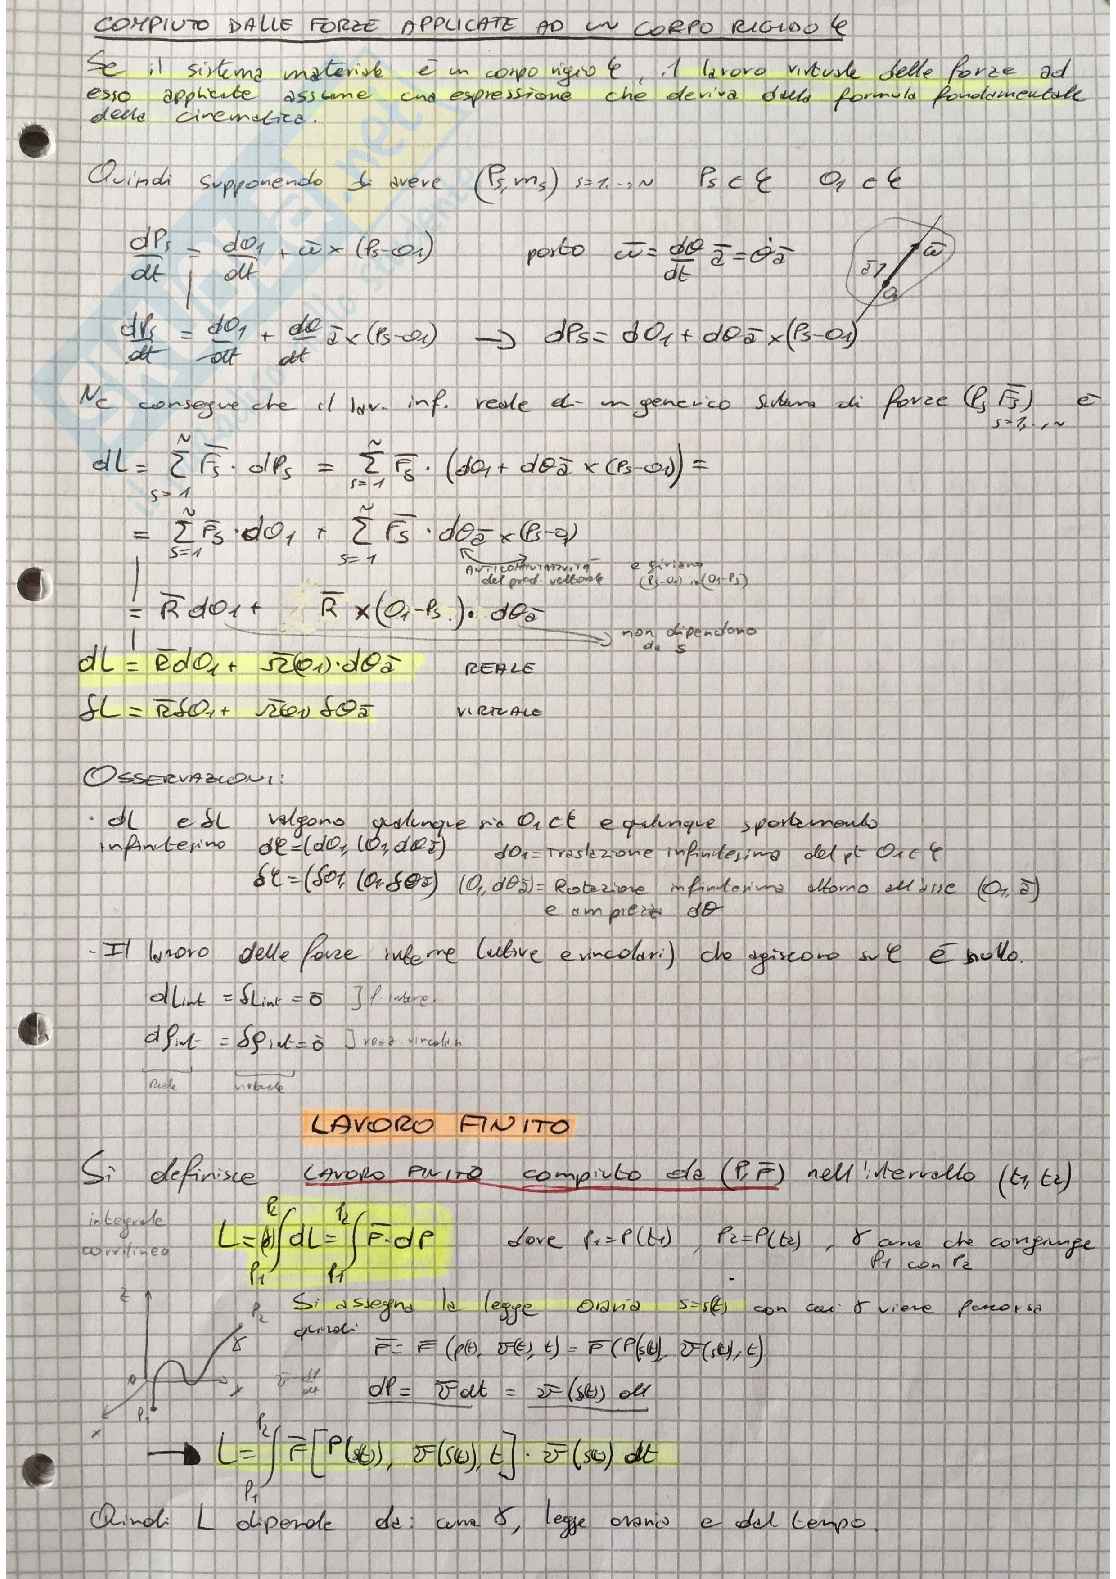 COMPIUTO DALLE FORZE APPLICATE AD UN CORPO RIGIDO C
Se il sistema materiale è un corpo rigio C, il lavoro virtuale delle forze ad
esso applicate assume una espressione che deriva dalla formula fondamentale
della cinematica.
Quindi supponendo di avere (Ps, ms) s=1,..,N Ps ⊂ C O1 ⊂ C
dPs/dt = dO1/dt + ω̄ × (Ps-O1) posto ω̄ = dθ/dt ā = θ̇ā
dPs/dt = dO1/dt + dθ/dt ā × (Ps-O1) → dPs = dO1 + dθā × (Ps-O1)
Ne consegue che il lav. inf. reale di un generico sistema di forze (Ps F̄s) s=1,..,N è
dL = Σ F̄s · dPs = Σ F̄s · (dO1 + dθā × (Ps-O1)) =
= Σ F̄s · dO1 + Σ F̄s · dθā × (Ps-O1)
ANTICOMMUTATIVITÀ del prod. vettoriale e giriamo (Ps-O1) in (O1-Ps)
= R̄ dO1 + R̄ × (O1-Ps) · dθā
non dipendono da s
dL = R̄dO1 + Ω̄(O1) · dθā REALE
δL = R̄δO1 + Ω̄(O1) δθā VIRTUALE
OSSERVAZIONI:
· dL e δL valgono qualunque sia O1 ⊂ C e qualunque spostamento
infinitesimo dC = (dO1, (O1, dθā)) dO1 = Traslazione infinitesima del pt O1 ⊂ C
δC = (δO1, (O1 δθā)) (O1, dθā) = Rotazione infinitesima attorno all'asse (O1, ā)
e ampiezza dθ
- Il lavoro delle forze interne (attive e vincolari) che agiscono su C è nullo.
dLint = δLint = 0 ] f interne
dρint = δρint = 0 ] vincolari
Reale virtuale
LAVORO FINITO
Si definisce LAVORO FINITO compiuto da (P, F̄) nell'intervallo (t1, t2)
integrale
curvilineo
L = ∫ dL = ∫ F̄ · dP dove P1=P(t1), P2=P(t2), γ curva che congiunge
P1 con P2
Si assegna la legge oraria s=s(t) con cui γ viene percorsa
quindi
F̄ = F̄ (P(t), v̄(t), t) = F̄ (P(s(t)), v̄(s(t)), t)
dP = v̄ dt = v̄(s(t)) dt
→ L = ∫ F̄ [P(s(t)), v̄(s(t)), t] · v̄(s(t)) dt
Quindi L dipende da: curva γ, legge oraria e dal tempo.